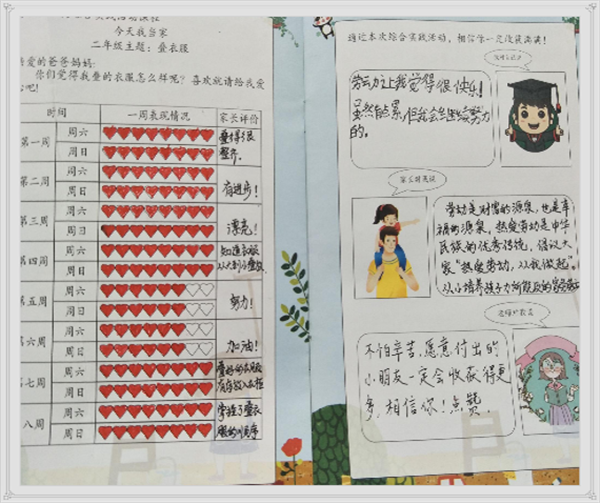 今天我当家
二年级主题：叠衣服
亲爱的爸爸妈妈：
你们觉得我叠的衣服怎么样呢？喜欢就请给我爱
心吧！
时间 一周表现情况 家长评价
第一周 周六 叠得很
周日 整齐.
第二周 周六
周日 有进步！
第三周 周六
周日 漂亮！
第四周 周六 知道衣服
周日
第五周 周六
周日 努力！
第六周 周六
周日 加油！
第七周 周六
周日
八周 周六 学程了叠衣
周日
通过本次综合实践活动，相信你一定收获满满！
劳动让我觉得很快乐！
虽然有点累，但我会继续努力
的。
家长对我说
劳动是财富的源泉，也是幸
福的源泉，热爱劳动是中华
民族的优秀传统，倡议大
家“热爱劳动，从我做起”。
从小培养孩子力所能及的家务
老师的寄语
不怕辛苦，愿意付出的
小朋友一定会收获得更
多，相信你！点赞